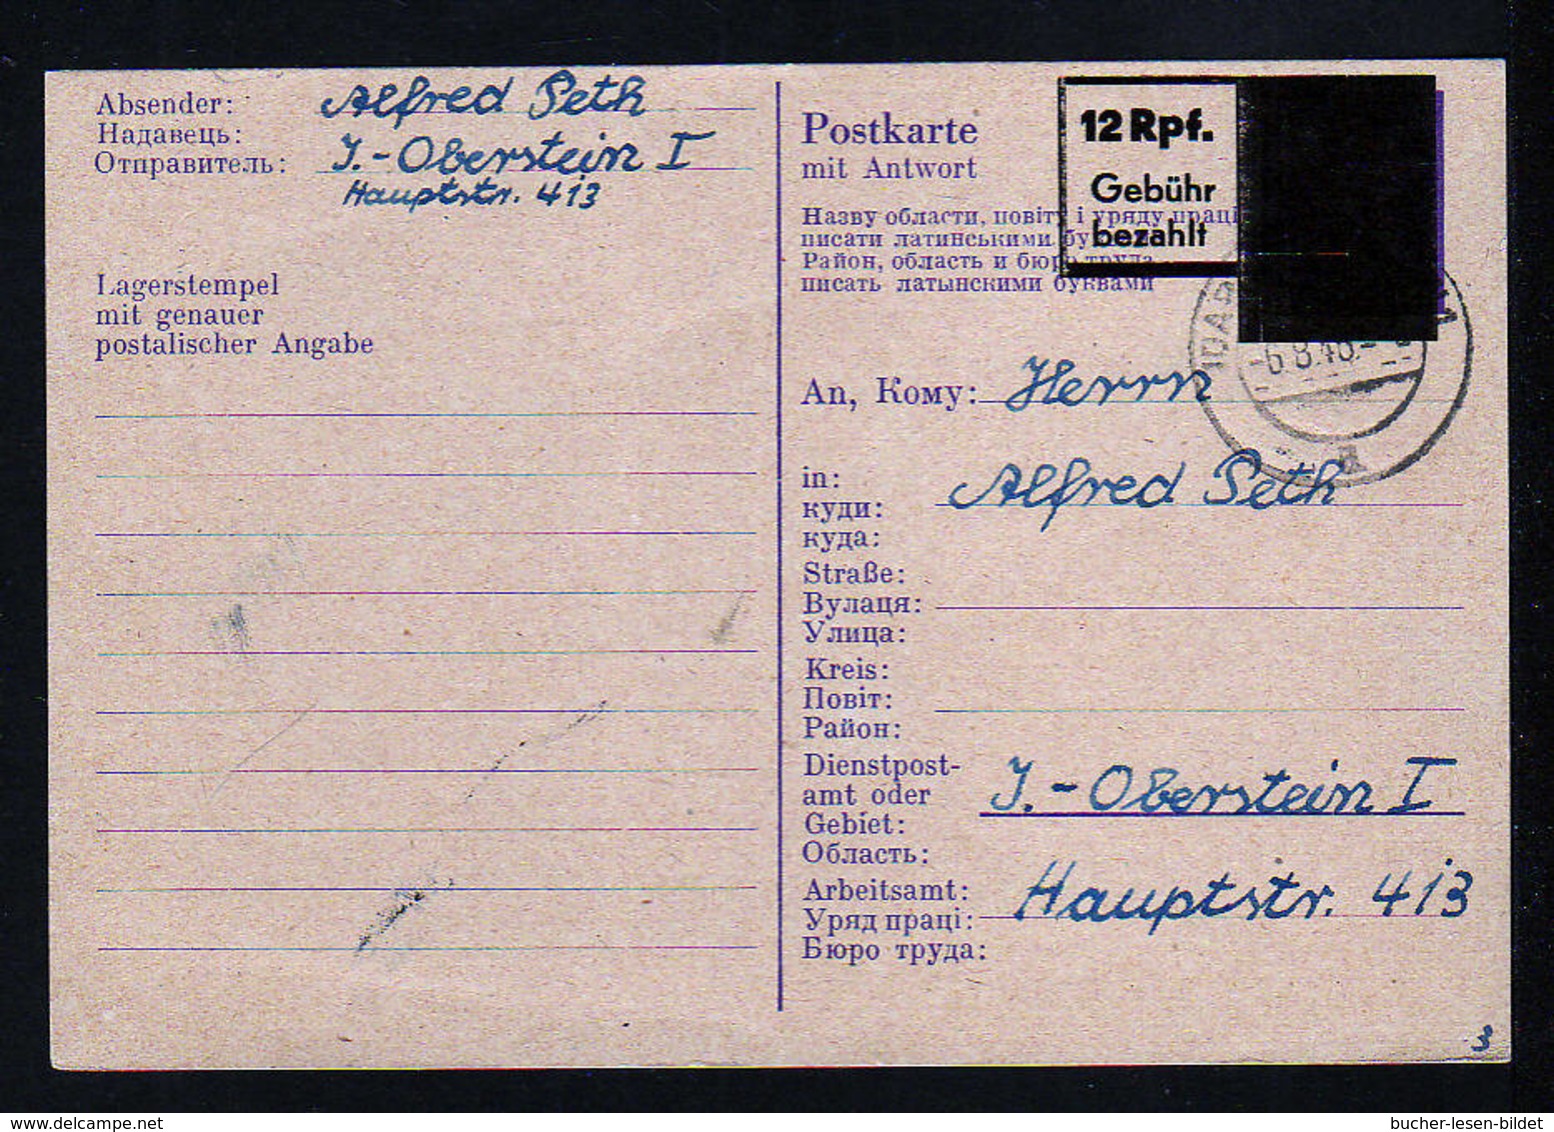 Absender: Alfred Peth
Надавець:
Отправитель: J.-Oberstein I
Hauptstr. 413
Lagerstempel
mit genauer
postalischer Angabe
Postkarte
mit Antwort
12 Rpf.
Gebühr
bezahlt
Назву области, повіту і уряду праці
писати латинськими бу
Район, область и бюро труда
писать латынскими буквами
-6.8.46.-
a
An, Кому: Herrn
in: Alfred Peth
куди:
куда:
Straße:
Вулаця:
Улица:
Kreis:
Повіт:
Район:
Dienstpost-
amt oder J.-Oberstein I
Gebiet:
Область:
Arbeitsamt: Hauptstr. 413
Уряд праці:
Бюро труда:
3
bucher-lesen-bildet